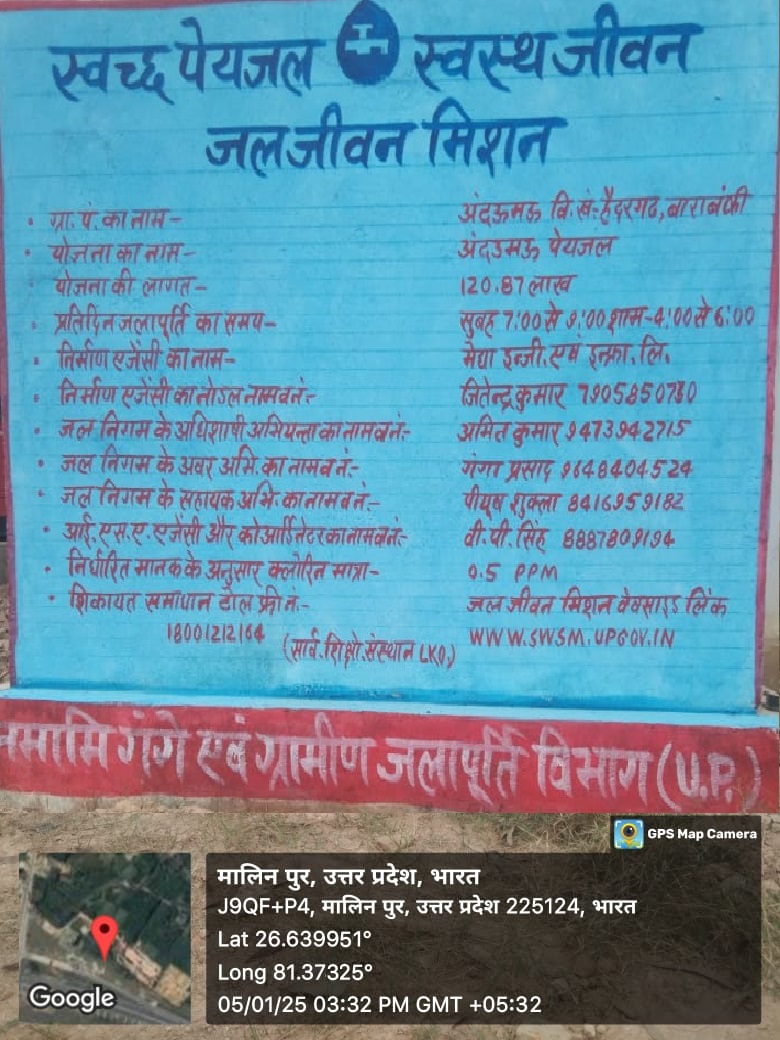 स्वच्छ पेयजल स्वस्थ जीवन
जल जीवन मिशन
• ग्रा. पं. का नाम- अंदऊमऊ वि.खं:-हैदरगढ़, बाराबंकी
• योजना का नाम- अंदउमऊ पेयजल
• योजना की लागत- 120.87 लाख
• प्रतिदिन जलापूर्ति का समय- सुबह 7:00 से 9:00 शाम-4:00 से 6:00
• निर्माण एजेंसी का नाम- मेघा इन्जी. एवं इन्फ्रा. लि.
• निर्माण एजेंसी का नोडल नाम व नं:- जितेन्द्र कुमार 7905850780
• जल निगम के अधिशाषी अभियन्ता का नाम व नं:- अमित कुमार 9473942715
• जल निगम के अवर अभि. का नाम व नं:- गंगा प्रसाद 9648404524
• जल निगम के सहायक अभि. का नाम व नं:- पीयूष शुक्ला 8416959182
• आई. एस. ए. एजेंसी और को आर्डिनेटर का नाम व नं:- वी. पी. सिंह 8887809194
• निर्धारित मानक के अनुसार क्लोरिन मात्रा- 0.5 PPM
• शिकायत समाधान टोल फ्री नं:- जल जीवन मिशन वेवसाइड लिंक
18001212164 (सार्व. शिक्षो. संस्थान LKO.) WWW.SWSM.UPGOV.IN
नमामि गंगे एवं ग्रामीण जलापूर्ति विभाग (U.P.)
GPS Map Camera
मालिन पुर, उत्तर प्रदेश, भारत
J9QF+P4, मालिन पुर, उत्तर प्रदेश 225124, भारत
Lat 26.639951°
Long 81.37325°
05/01/25 03:32 PM GMT +05:32
Google